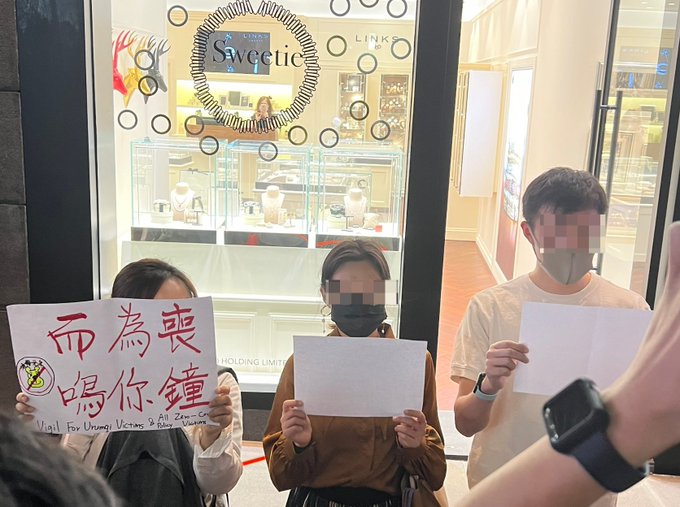 LINKS
Sweetie
LINKS
HOLDING LIMITE
喪鐘
為你
而鳴
Vigil For Urumqi Victims & All Zero-Cov
Policy Victims